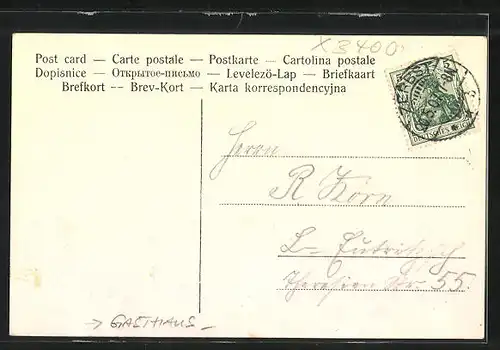 X3400
Post card — Carte postale — Postkarte — Cartolina postale
Dopisnice — Открытое-письмо — Levelező-Lap — Briefkaart
Brefkort -- Brev-Kort — Karta korrespondencyjna
ZERBST
DEUTSCHES REICH
Herrn
R Korn
L- Eutritzsch
Theresien Str 55.
→ GASTHAUS